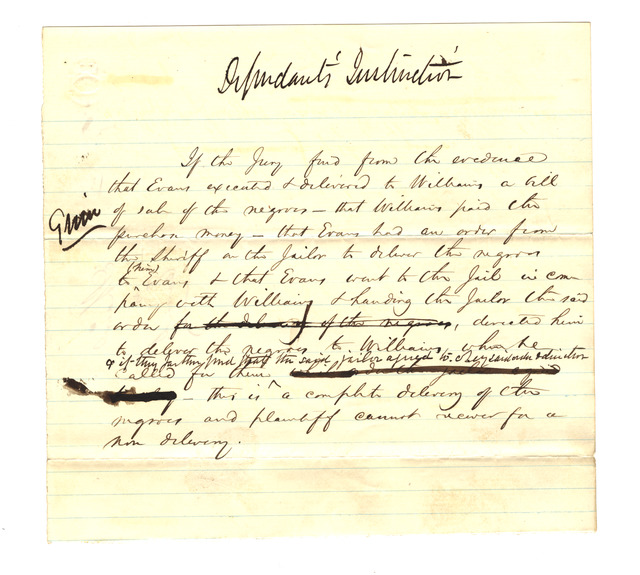 Defendants' Instruction
If the Jury find from the evidence
that Evans executed & delivered to Williams a bill
of sale of the negroes — that Williams paid the
Given
purchase money — that Evans had an order from
the Sheriff on the Jailor to deliver the negroes
to (Evans) Evans & that Evans went to the Jail in com
pany with Williams & handing the Jailor the said
order for the delivery of the negroes, directed him
to deliver the negroes to Williams when he
& if they further find that the said jailor agreed to obey said order & direction
called for them
— this is ^ a complete delivery of the
negroes and plaintiff cannot recover for a
non delivery.